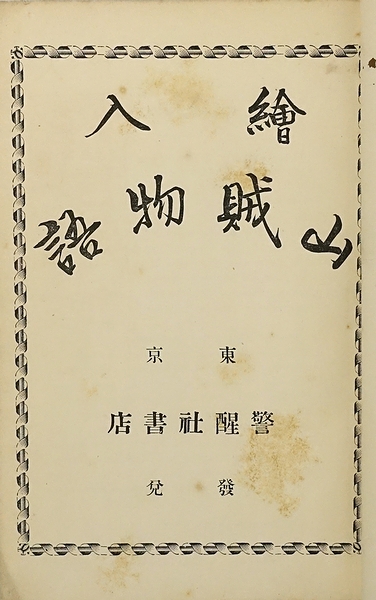 繪入
山賊物語
東京
警醒社書店
發兌